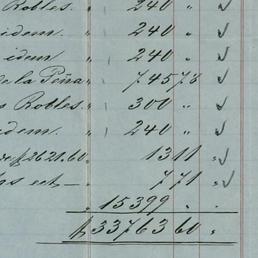 Robles. " 240 " ✓
idem " 240 " ✓
idem " 240 " ✓
de la Peña " 74578 ✓
s Robles. " 300 " ✓
idem. " 240 " ✓
$2621.60. 1311 " ✓
" 771 " ✓
" 15399 " "
$ 33763 60 "